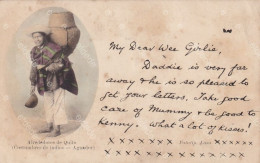 My Dear Wee Girlie,
Daddie is very far
away & he is so pleased to
get your letters. Take good
care of Mummy & be good to
Kenny. What a lot of kisses.
x x x x x x x x x x x x
x x x x x x x x x
de Quito